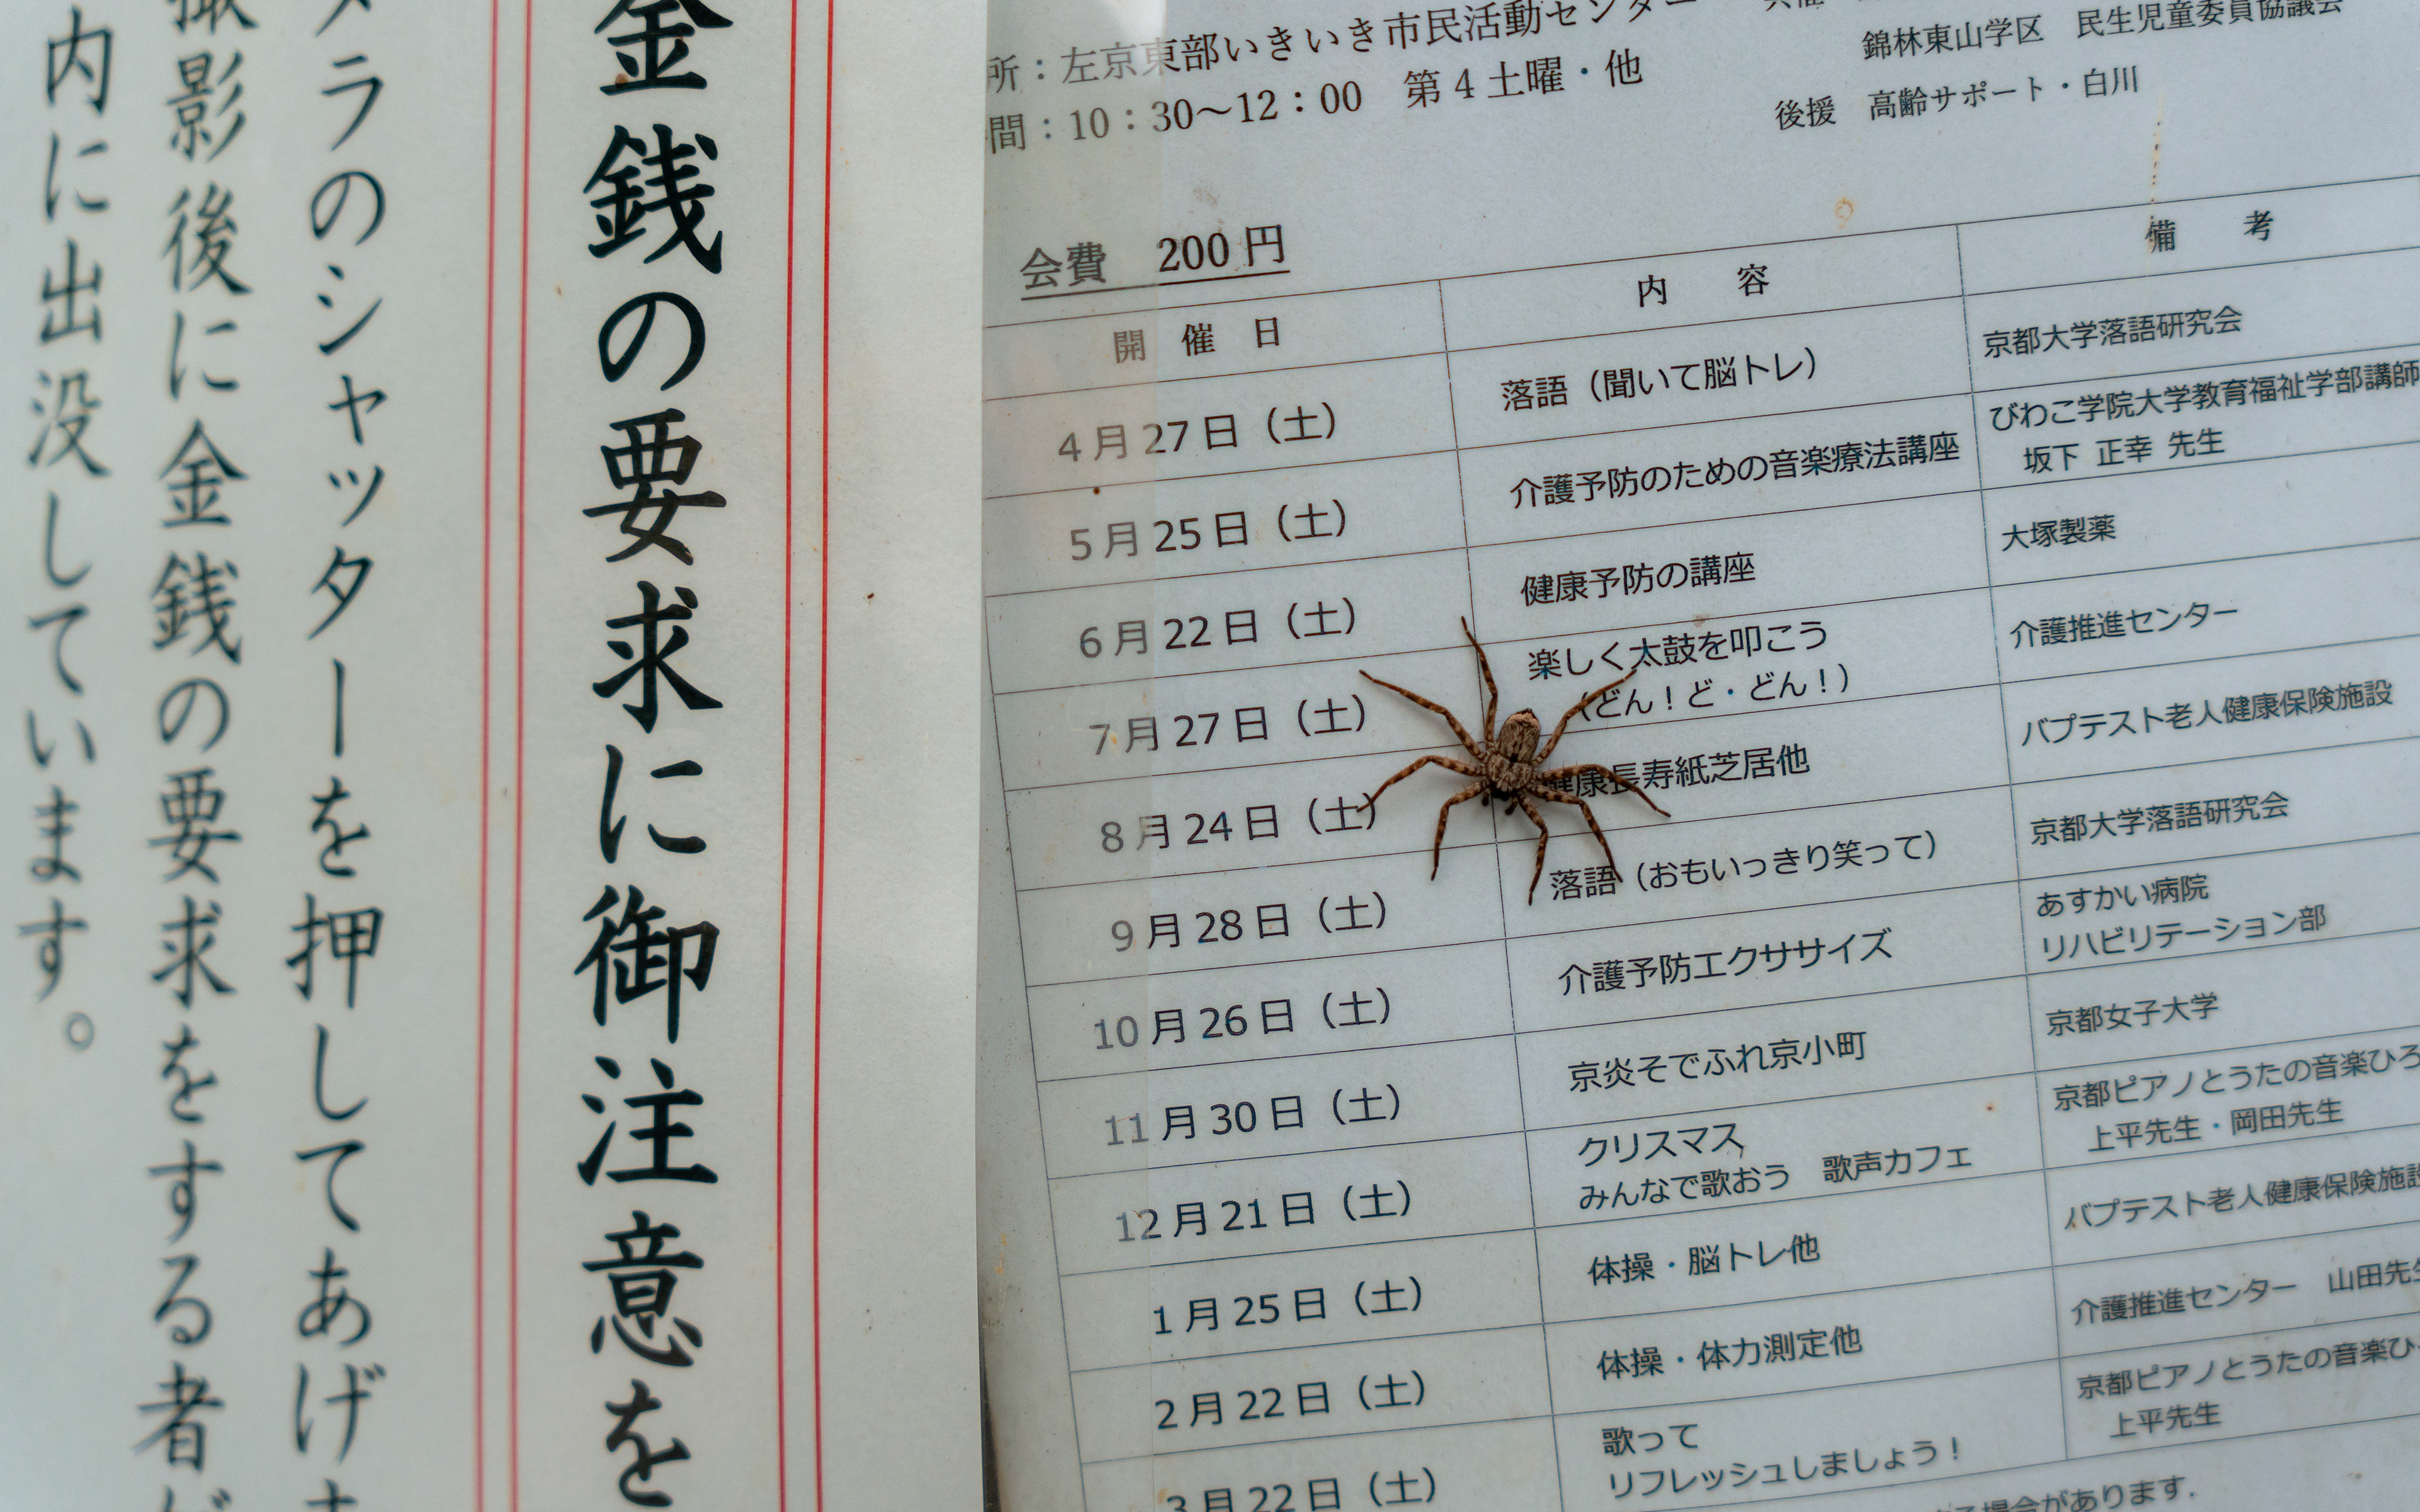 金銭の要求に御注意を
メラのシャッターを押してあげ
撮影後に金銭の要求をする者が
内に出没しています。
所：左京東部いきいき市民活動センター
間：10：30～12：00　第4土曜・他
錦林東山学区　民生児童委員協議会
後援　高齢サポート・白川
会費　200円
開　催　日　内　容　備　考
4月27日（土）　落語（聞いて脳トレ）　京都大学落語研究会
5月25日（土）　介護予防のための音楽療法講座　びわこ学院大学教育福祉学部講師
坂下 正幸 先生
6月22日（土）　健康予防の講座　大塚製薬
7月27日（土）　楽しく太鼓を叩こう　介護推進センター
（どん！ど・どん！）
8月24日（土）　健康長寿紙芝居他　バプテスト老人健康保険施設
9月28日（土）　落語（おもいっきり笑って）　京都大学落語研究会
10月26日（土）　介護予防エクササイズ　あすかい病院
リハビリテーション部
11月30日（土）　京炎そでふれ京小町　京都女子大学
12月21日（土）　クリスマス　京都ピアノとうたの音楽ひろ
みんなで歌おう　歌声カフェ　上平先生・岡田先生
1月25日（土）　体操・脳トレ他　バプテスト老人健康保険施設
2月22日（土）　体操・体力測定他　介護推進センター　山田先生
3月22日（土）　歌って　京都ピアノとうたの音楽ひ
リフレッシュしましょう！　上平先生
場合があります.